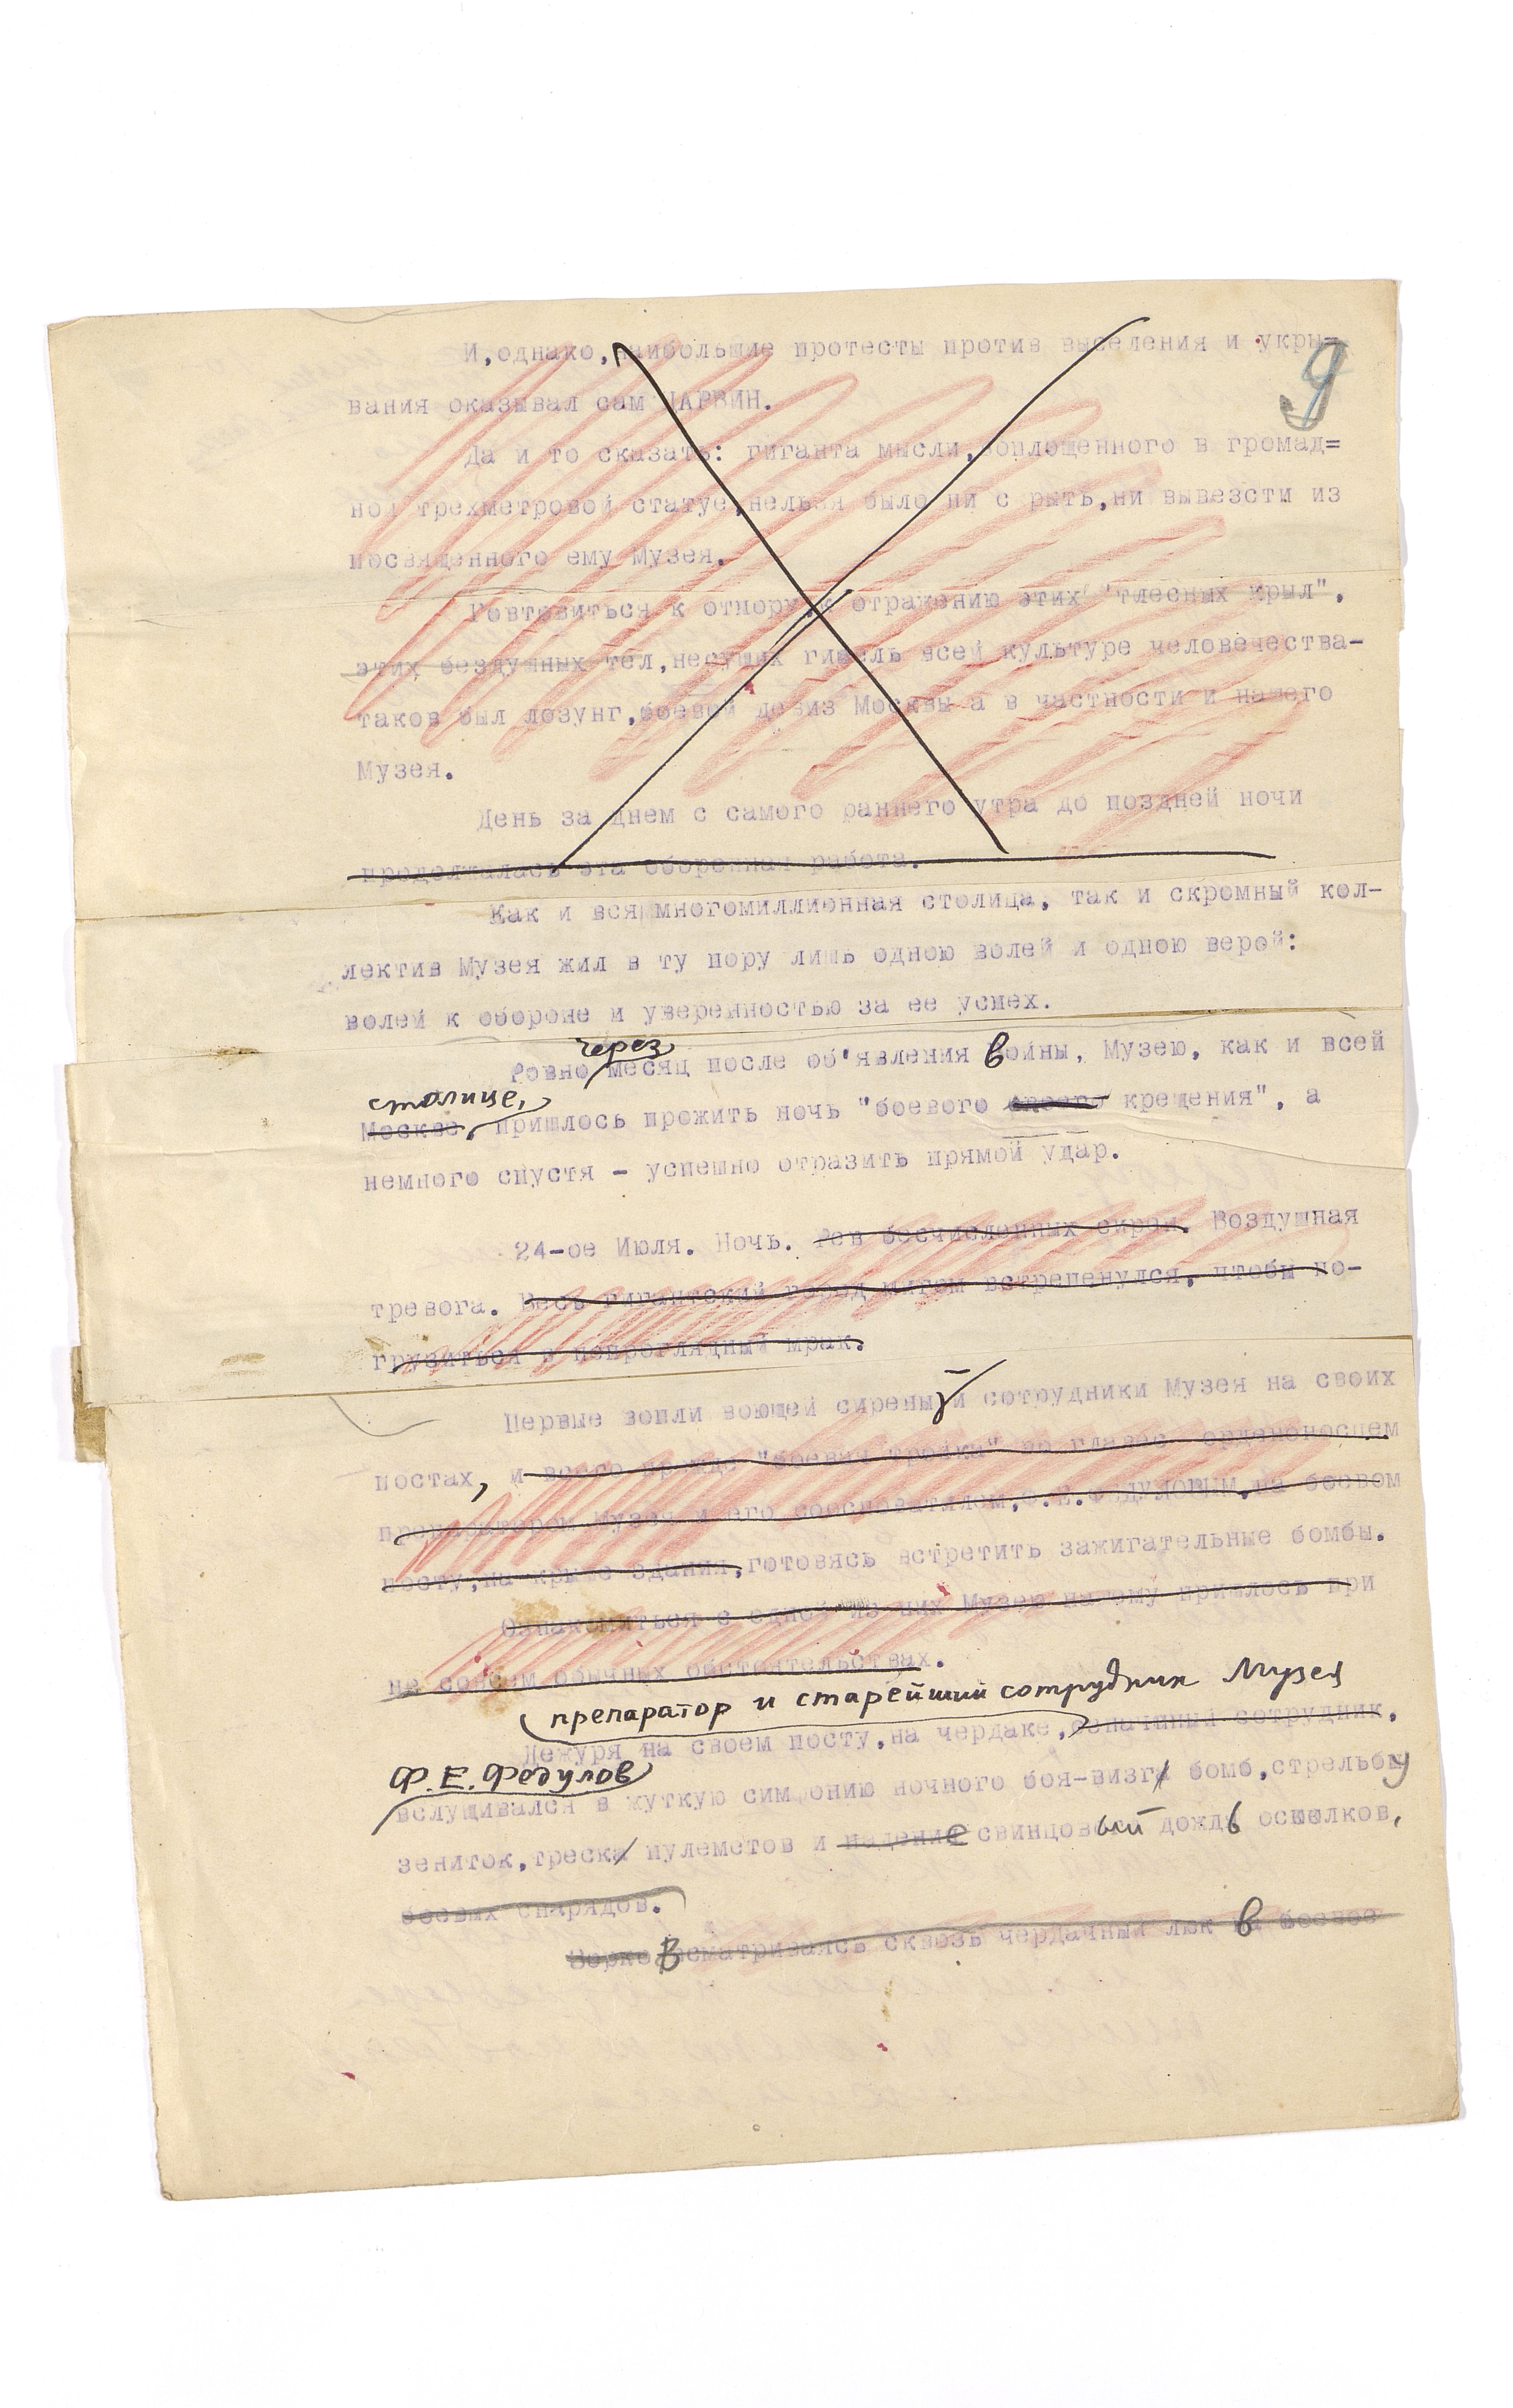 И,однако,наибольшие протесты против выселения и укры=
9
вания оказывал сам ДАРВИН.
Да и то сказать: гиганта мысли,воплощенного в громад=
ной трехметровой статуе,нельзя было ни с рыть,ни вывезсти из
посвященного ему Музея.
Говтовиться к отпору,к отражению этих "тлесных крыл",
этих бездушных тел,несущих гибель всей культуре человечества-
таков был лозунг,боевой девиз Москвы а в частности и нашего
Музея.
День за днем с самого раннего утра до поздней ночи
продолжалась эта оборонная работа.
Как и вся многомиллионная столица, так и скромный кол-
лектив Музея жил в ту пору лишь одною волей и одною верой:
волей к обороне и уверенностью за ее успех.
через
Ровно месяц после об'явления войны, Музею, как и всей
столице,
Москве, пришлось прожить ночь "боевого своего крещения", а
немного спустя - успешно отразить прямой удар.
24-ое Июля. Ночь. Рев бесчисленных сирен. Воздушная
тревога. Весь гигантский город мигом встрепенулся, чтобы по-
грузиться в непроглядный мрак.
Первые вопли воющей сирены и сотрудники Музея на своих
постах, и всего прежде "боевая тройка" во главе с орденоносцем
препаратором Музея и его сооснователем,Ф.Е.ФЕДУЛОВЫМ,на боевом
посту,на крыше здания,готовясь встретить зажигательные бомбы.
Ознакомиться с одной из них Музею нашему пришлось при
не совсем обычных обстоятельствах.
препаратор и старейший сотрудник Музея
Дежуря на своем посту,на чердаке,означнный сотрудник,
Ф.Е.Федулов
вслушивался в жуткую симфонию ночного боя-визг бомб,стрельбу
зениток,треск пулеметов и падение свинцовый дождь осколков,
боевых снарядов.
Зорко Всматриваясь сквозь чердачный люк в боевое